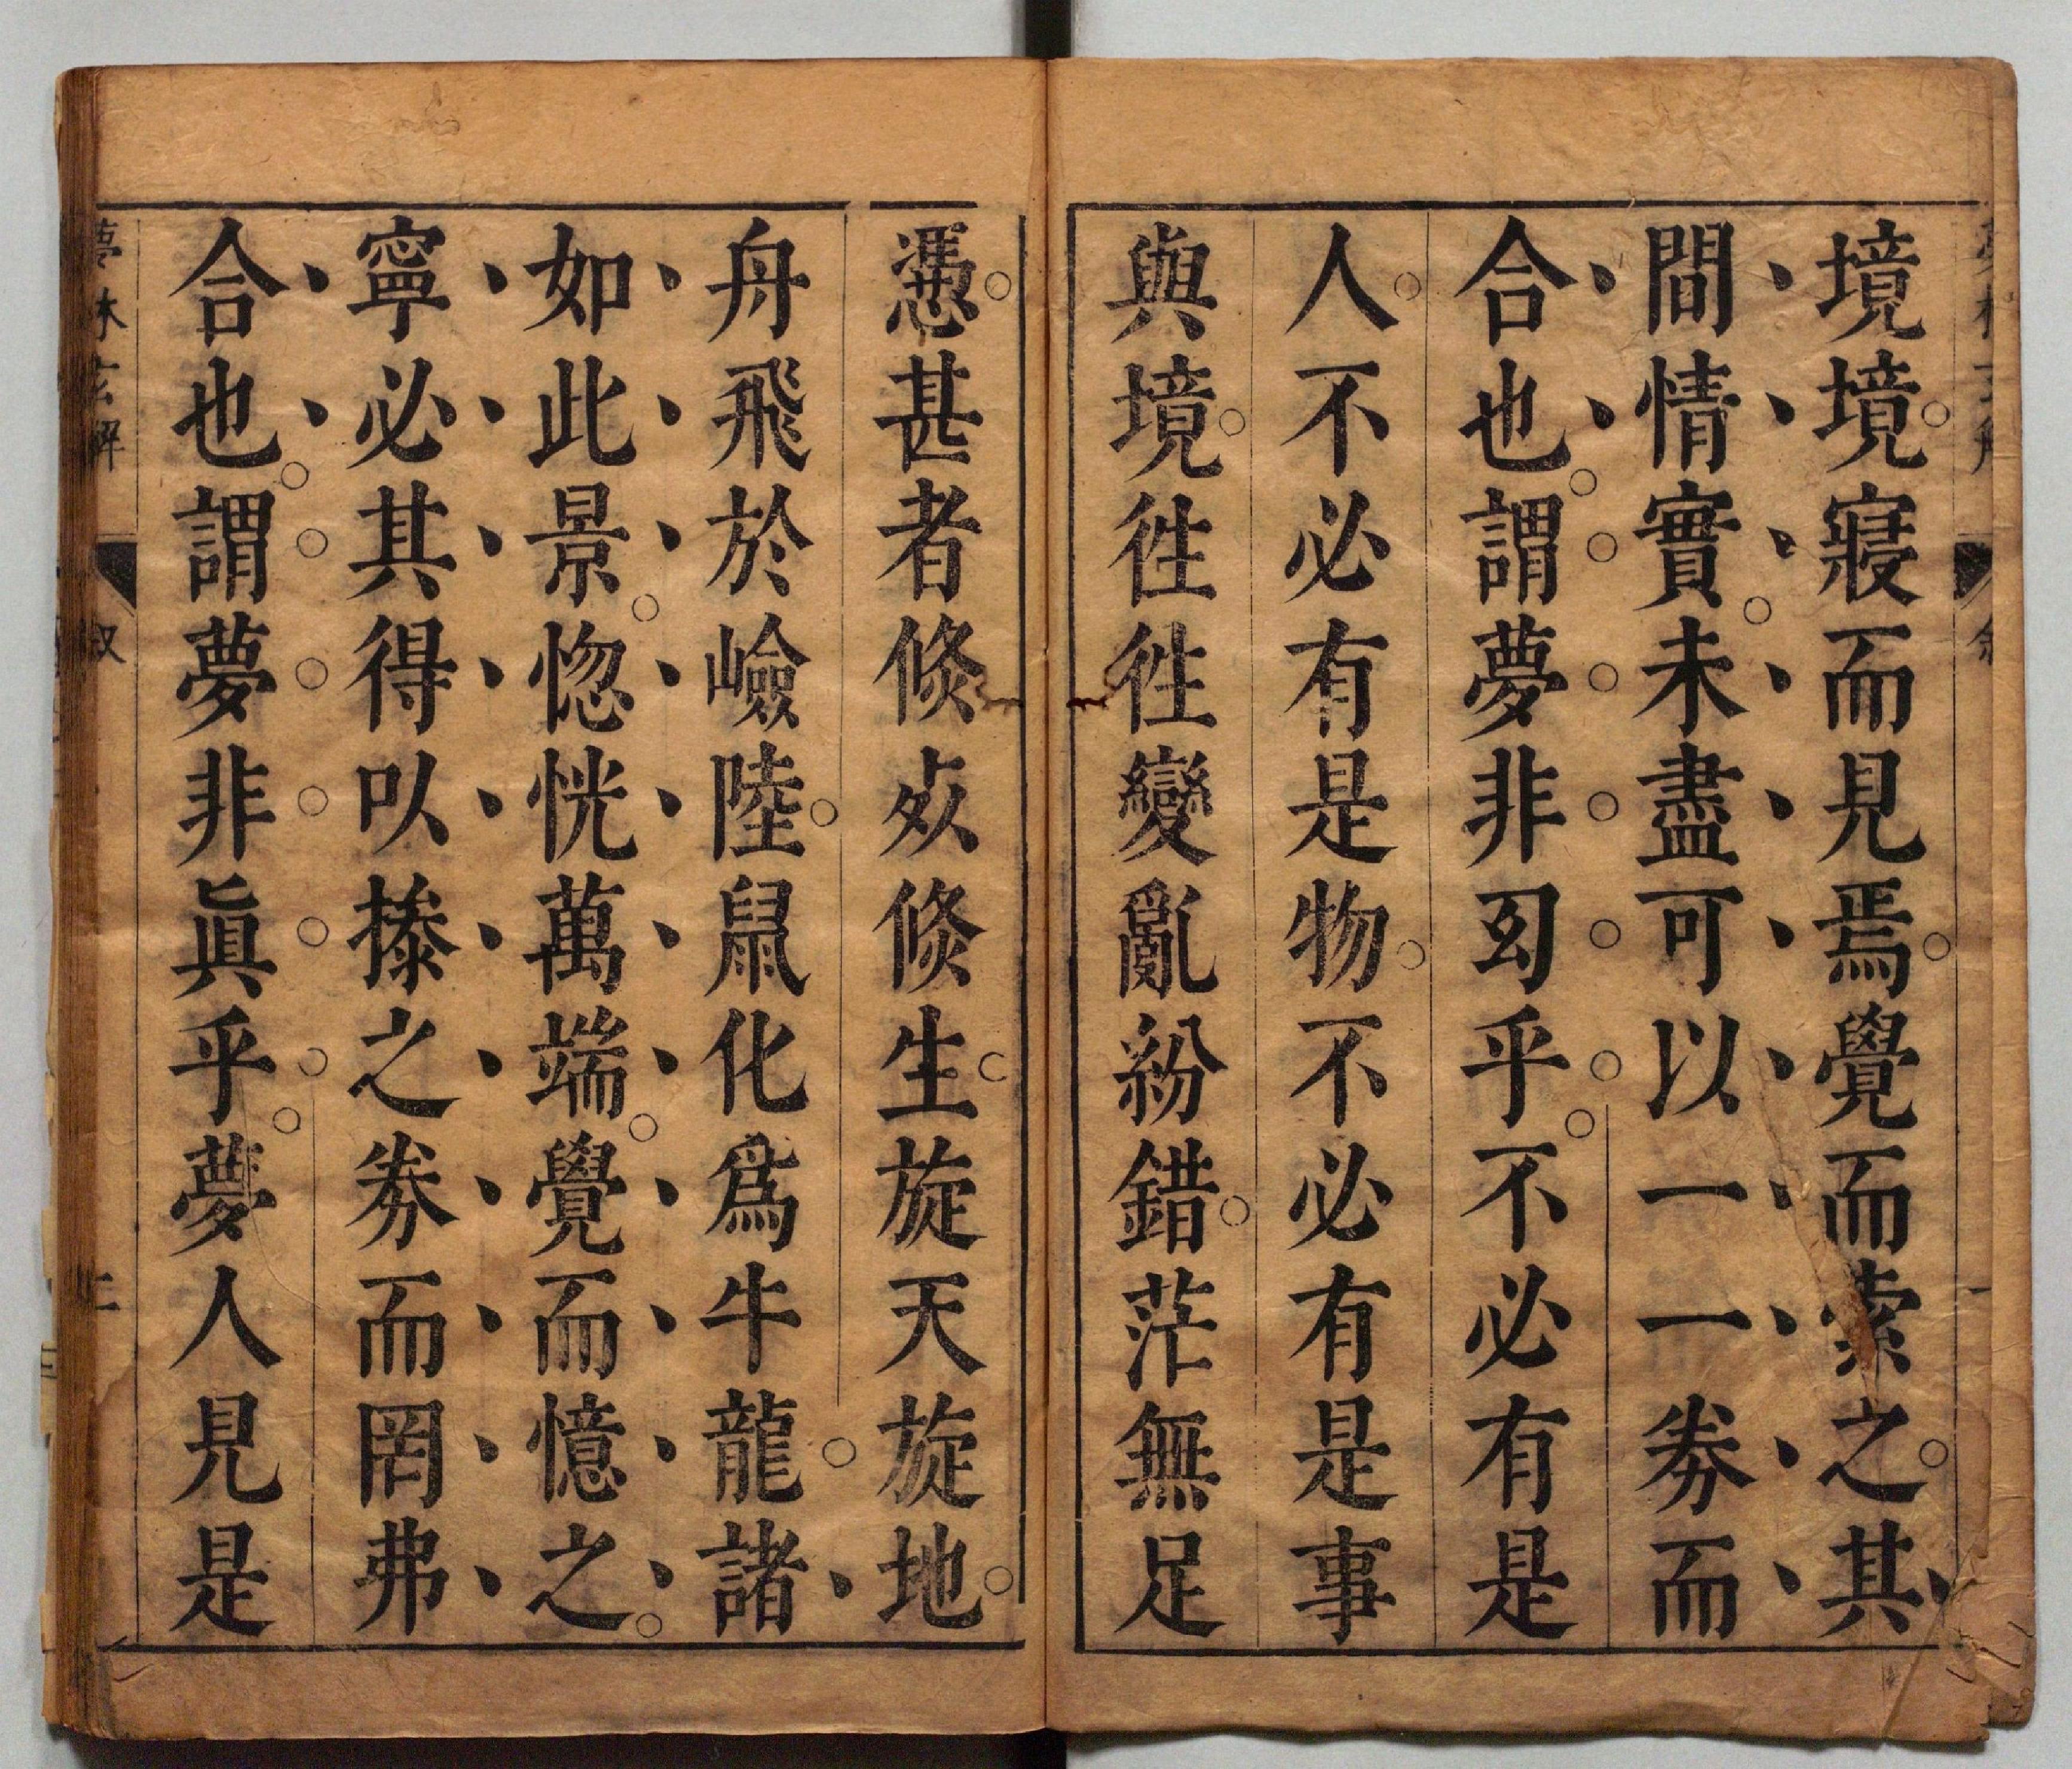 境境寢而見焉覺而索之其
間情實未盡可以一一劵而
合也謂夢非幻乎不必有是
人不必有是物不必有是事
與境徃徃變亂紛錯茫無足
憑甚者倐㱠倐生旋天旋地
舟飛於嶮陸鼠化爲牛龍諸
如此景惚恍萬端覺而憶之
寧必其得以搽之劵而罔弗
合也謂夢非眞乎夢人見是
夢林玄解
叙
二